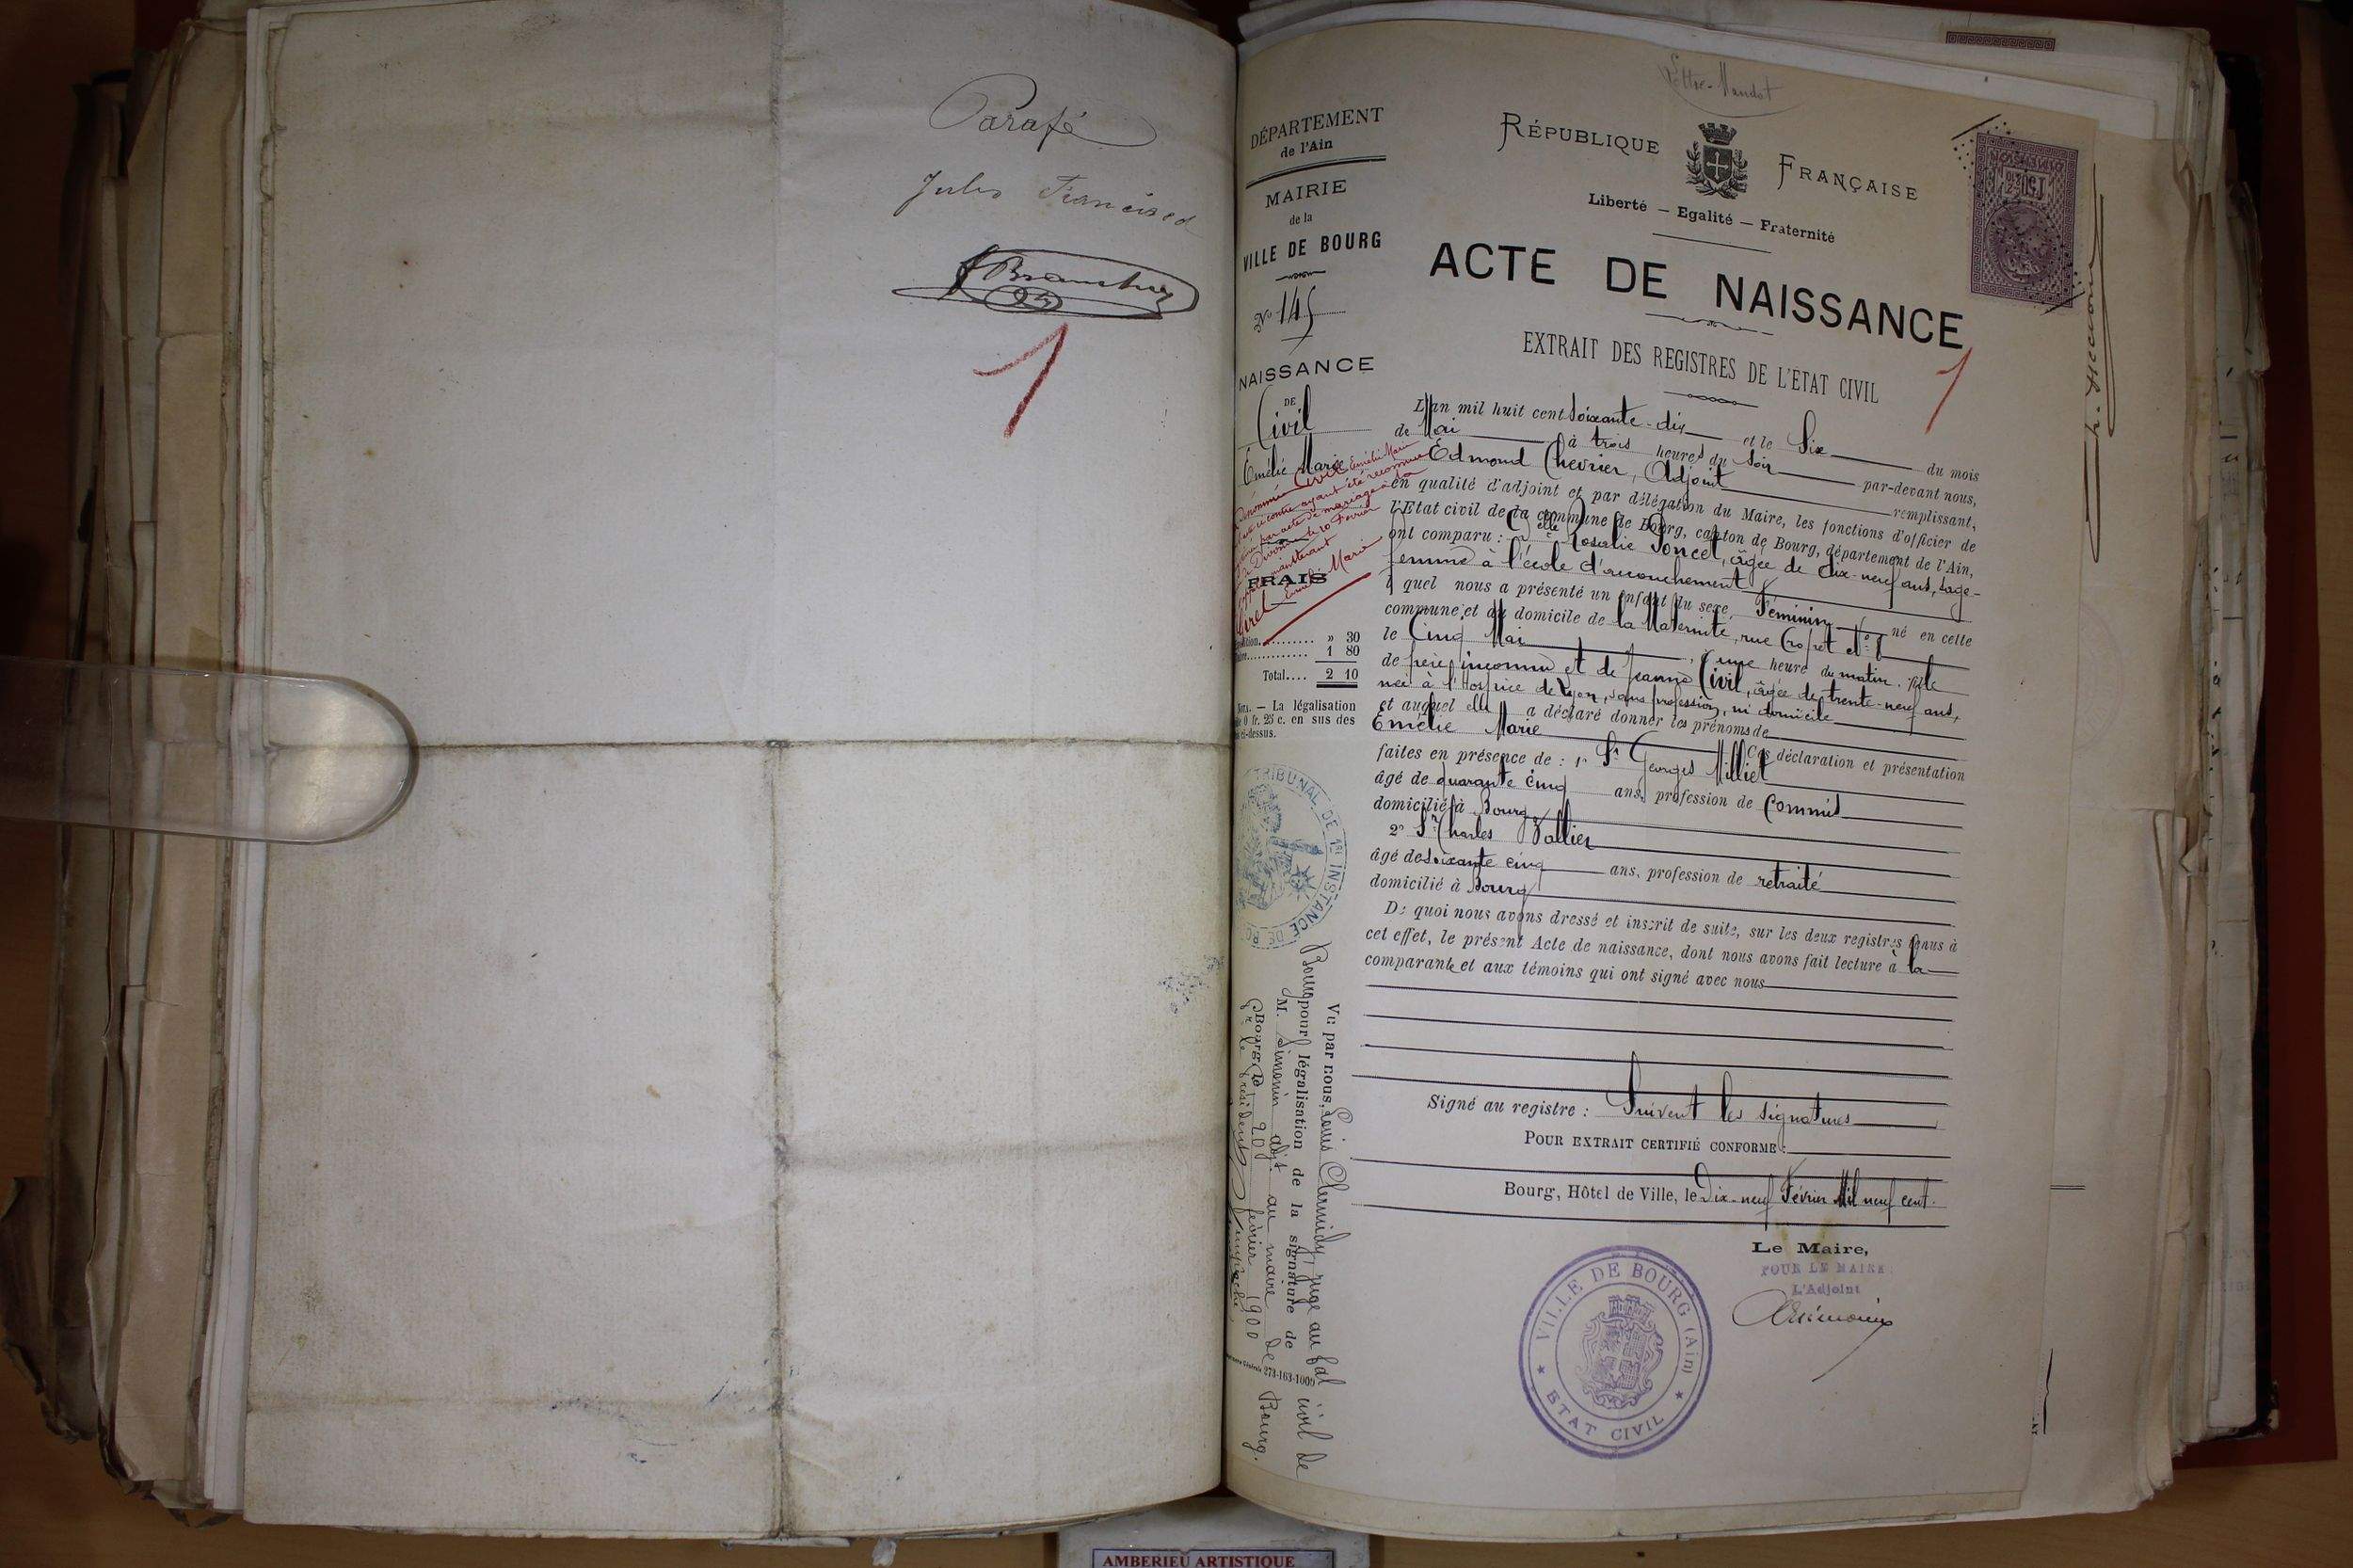 Parafé
Jules Francised
1
Lettre-Mandat
DÉPARTEMENT
de l'Ain
MAIRIE
de la
VILLE DE BOURG
No 145
NAISSANCE
DE
Civil
Emélie Marie
Civil Emélie Marie
ci contre ayant été reconnue
par acte de mariage à la
le 20 Février
maintenant
Emélie Marie
FRAIS
» 30
1 80
Total.... 2 10
— La légalisation
0 fr. 25 c. en sus des
ci-dessus.
TRIBUNAL DE 1RE INSTANCE DE BO
Vu par nous, Louis Clermidy, juge au bal civil de
Bourg pour légalisation de la signature de
M. Simonin adjt au maire de Bourg.
Bourg le 20 février 1900
Pr le Président
273-163-1000
RÉPUBLIQUE FRANÇAISE
Liberté — Egalité — Fraternité
ACTE DE NAISSANCE
EXTRAIT DES REGISTRES DE L'ÉTAT CIVIL
1
L'an mil huit cent soixante-dix et le Six du mois
de Mai à trois heures du soir par-devant nous,
Edmond Chevrier, Adjoint remplissant,
en qualité d'adjoint et par délégation du Maire, les fonctions d'officier de
l'Etat civil de la commune de Bourg, canton de Bourg, département de l'Ain,
ont comparu : Delle Rosalie Poncet, âgée de dix-neuf ans, sage-
femme à l'école d'accouchement
quel nous a présenté un enfant du sexe Féminin né en cette
commune, et au domicile de la Maternité, rue Cropet No 1
le Cinq Mai, à une heure du matin, fille
de père inconnu et de Jeanne Civil, âgée de trente-neuf ans,
née à l'Hospice de Lyon, sans profession, ni domicile
et auquel elle a déclaré donner les prénoms de
Emélie Marie Ces déclaration et présentation
faites en présence de : 1° Sr Georges Milliet
âgé de quarante cinq ans, profession de Commis
domicilié à Bourg
2° Sr Charles Vallier
âgé de soixante cinq ans, profession de retraité
domicilié à Bourg
De quoi nous avons dressé et inscrit de suite, sur les deux registres tenus à
cet effet, le présent Acte de naissance, dont nous avons fait lecture à la
comparante et aux témoins qui ont signé avec nous
Signé au registre : Suivent les signatures
POUR EXTRAIT CERTIFIÉ CONFORME :
Bourg, Hôtel de Ville, le Dix-neuf Février Mil neuf cent.
Le Maire,
POUR LE MAIRE
L'Adjoint
VILLE DE BOURG (Ain)
ETAT CIVIL
AMBERIEU ARTISTIQUE